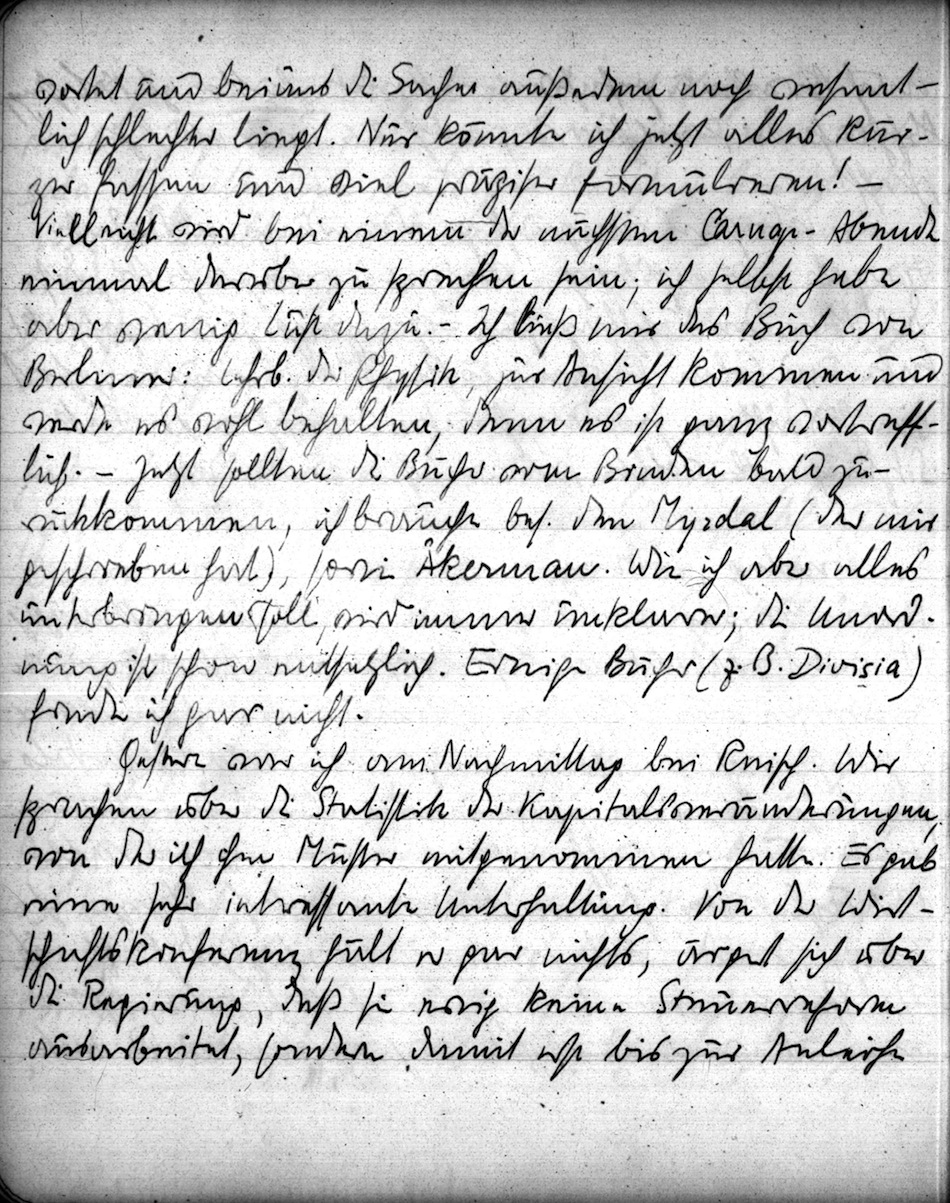 wortet und bei uns die Sache außerdem noch wesent-
lich schlechter liegt. Nur könnte ich jetzt alles kür-
zer fassen und viel präziser formulieren! –
Vielleicht wird bei einem der nächsten Carnap-Abende
einmal darüber zu sprechen sein; ich selbst habe
aber wenig Lust dazu. – Ich ließ mir das Buch von
Berliner: Lehrb. der Physik, zur Ansicht kommen und
werde es wohl behalten, denn es ist ganz vortreff-
lich. – Jetzt sollten die Bücher vom Binden bald zu-
rückkommen, ich brauche bes. den Myrdal (der mir
geschrieben hat), sowie Åkerman. Wie ich aber alles
unterbringen soll, wird immer unklarer; die Unord-
nung ist schon entsetzlich. Einige Bücher (z. B. Divisia)
finde ich gar nicht.
Gestern war ich am Nachmittag bei Reisch. Wir
sprachen über die Statistik der Kapitalsveränderungen,
von der ich ihm Muster mitgenommen hatte. Es gab
eine sehr interessante Unterhaltung. Von der Wirt-
schaftskonferenz hält er gar nichts, ärgert sich über
die Regierung, daß sie ewig keine Steuerreform
ausarbeitet, sondern damit erst bis zur Anleihe